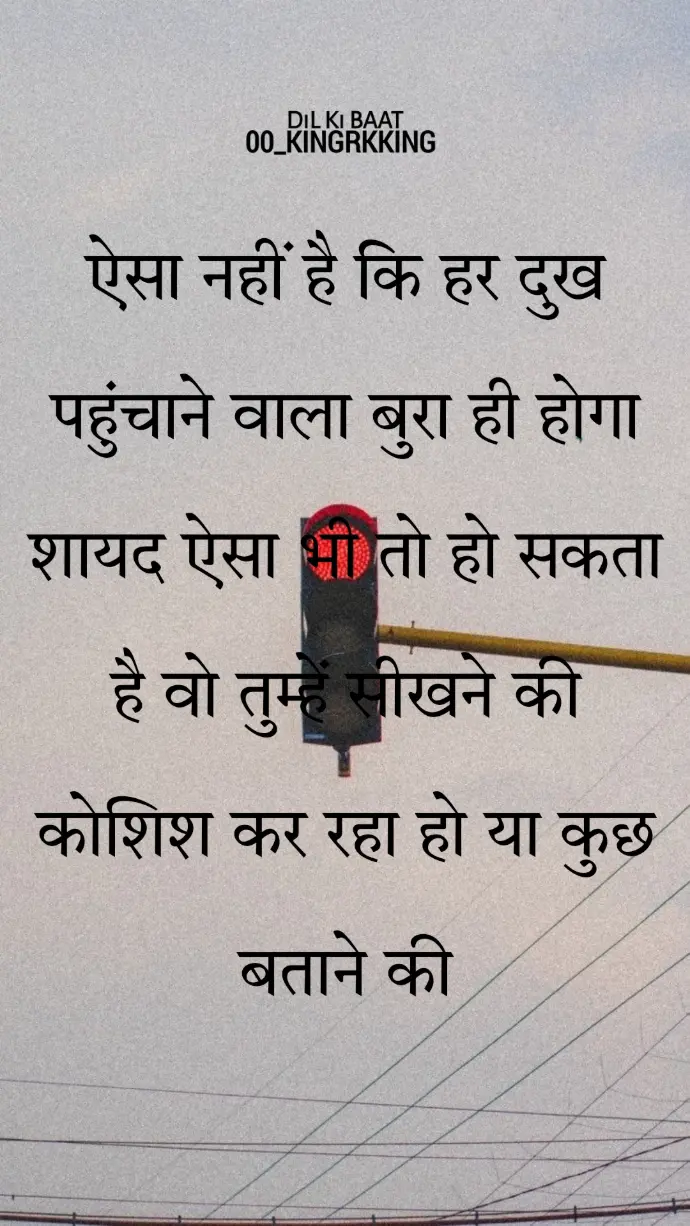 DiL Ki BAAT
00_KINGRKKING
ऐसा नहीं है कि हर दुख
पहुंचाने वाला बुरा ही होगा
शायद ऐसा भी तो हो सकता
है वो तुम्हें सीखने की
कोशिश कर रहा हो या कुछ
बताने की